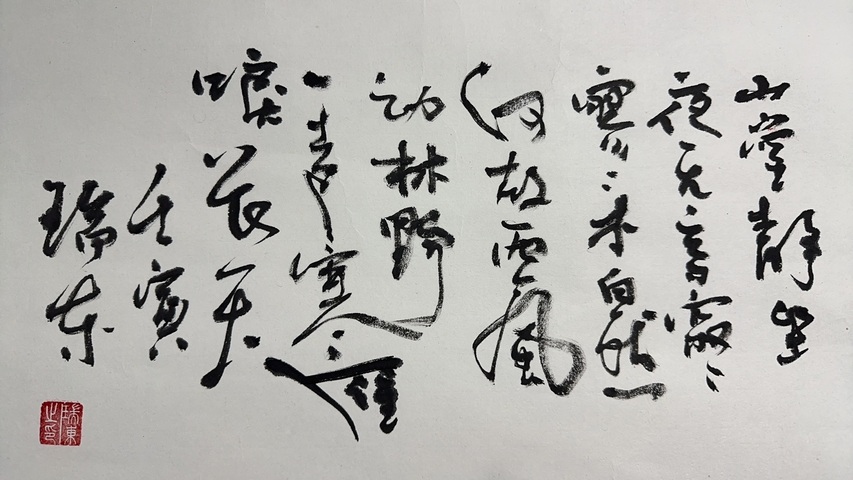 山堂静坐
夜无言寂〻
寥〻本自然
何故西風
动林野
一声寒雁
唳长天
壬寅
瑞东
瑞東之印